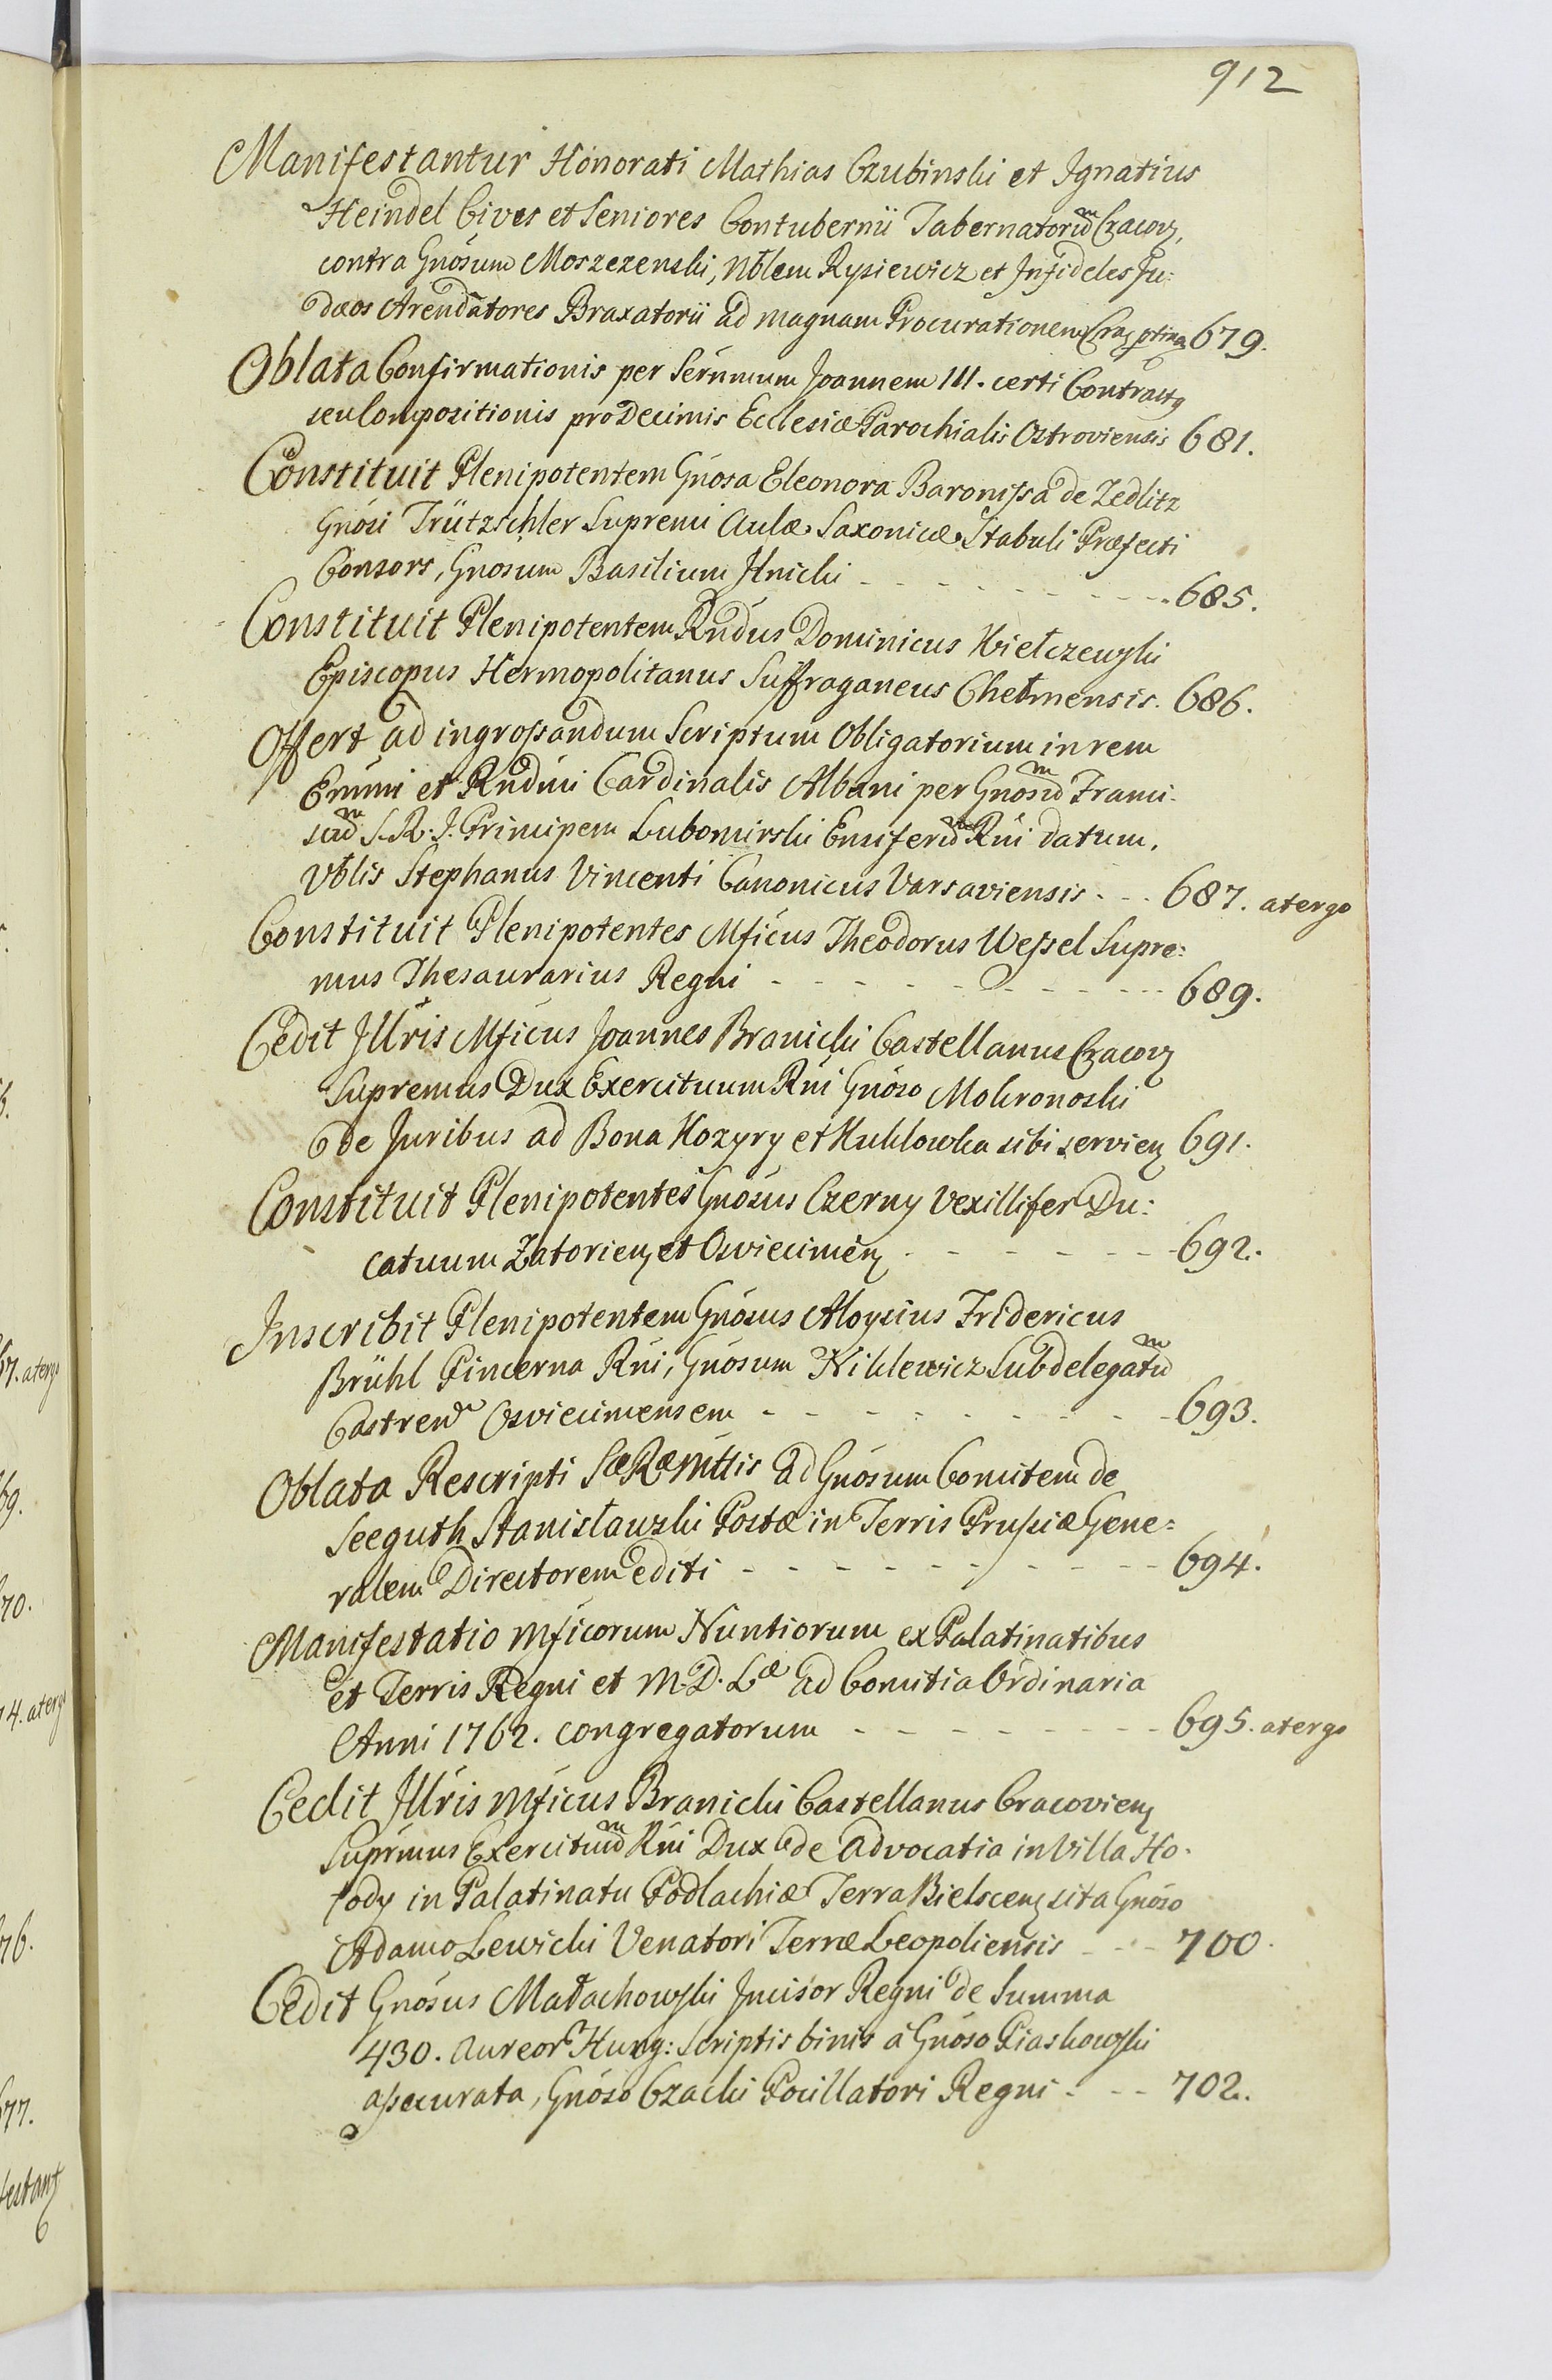 912
Manifestantur Honorati Mathias Czubinski et Ignatius
Heindel Cives et Seniores Contubernii Tabernatorum Cracov,
contra Gnosum Moszczenski, Nblem Rysiewicz et Infideles Ju:
dæos Arendatores Braxatorii ad magnam Procurationem Crac ptinen 679.
Oblata Confirmationis per Sernmum Joannem III. certi Contractus
seu Compositionis pro Decimis Ecclesiæ Parochialis Ostroviensis 681.
Constituit Plenipotentem Gnosa Eleonora Baronissa de Zedlitz
Gnosi Trützschler Supremi Aulæ Saxonicæ Stabuli Præfecti
Consors, Gnosum Basilium Ilnicki - - - - - - - - - 685.
Constituit Plenipotentem Rndus Dominicus Kiełczewski
Episcopus Hermopolitanus Suffraganeus Chełmensis. 686.
Offert ad ingrossandum Scriptum Obligatorium in rem
Emmi et Rndmi Cardinalis Albani per Gnosum Franci:
scum S. R. J. Principem Lubomirski Ensiferum Rni datum,
Vblis Stephanus Vincenti Canonicus Varsaviensis - - - 687. atergo
Constituit Plenipotentes Mficus Theodorus Wessel Supre:
mus Thesaurarius Regni - - - - - - - - - - 689.
Cedit Jllris Mficus Joannes Branicki Castellanus Cracov
Supremus Dux Exercituum Rni Gnoso Mokronoski
de Juribus ad Bona Kozyry et Kuklowka sibi servien 691.
Constituit Plenipotentes Gnosus Czerny Vexillifer Du:
catuum Zatorien et Osviecimen - - - - - - - 692.
Inscribit Plenipotentem Gnosus Aloysius Fridericus
Brühl Pincerna Rni, Gnosum Niklewicz Subdelegatum
Castren Osviecimensem - - - - - - - - - 693.
Oblata Rescripti Sæ Ræ Mttis ad Gnosum Comitem de
Seeguth Stanisławski Postæ in Terris Prussiæ Gene=
ralem Directorem editi - - - - - - - - - 694.
Manifestatio Mficorum Nuntiorum ex Palatinatibus
et Terris Regni et M. D. Læ ad Comitia Ordinaria
Anni 1762. congregatorum - - - - - - - - 695. atergo
Cedit Jllris Mficus Branicki Castellanus Cracovien
Suprmus Exercituum Rni Dux de Advocatia in Villa Ho-
łody in Palatinatu Podlachiæ Terra Bielscen sita Gnoso
Adamo Lewicki Venatori Terræ Leopoliensis - - - 700.
Cedit Gnosus Małachowski Incisor Regni de Summa
430. Aureor Hung: Scriptis binis à Gnoso Piaskowski
assecurata, Gnoso Czacki Pocillatori Regni - - - 702.